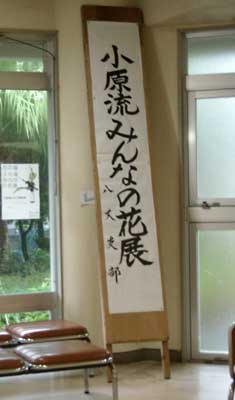 小原流みんなの花展
八丈支部